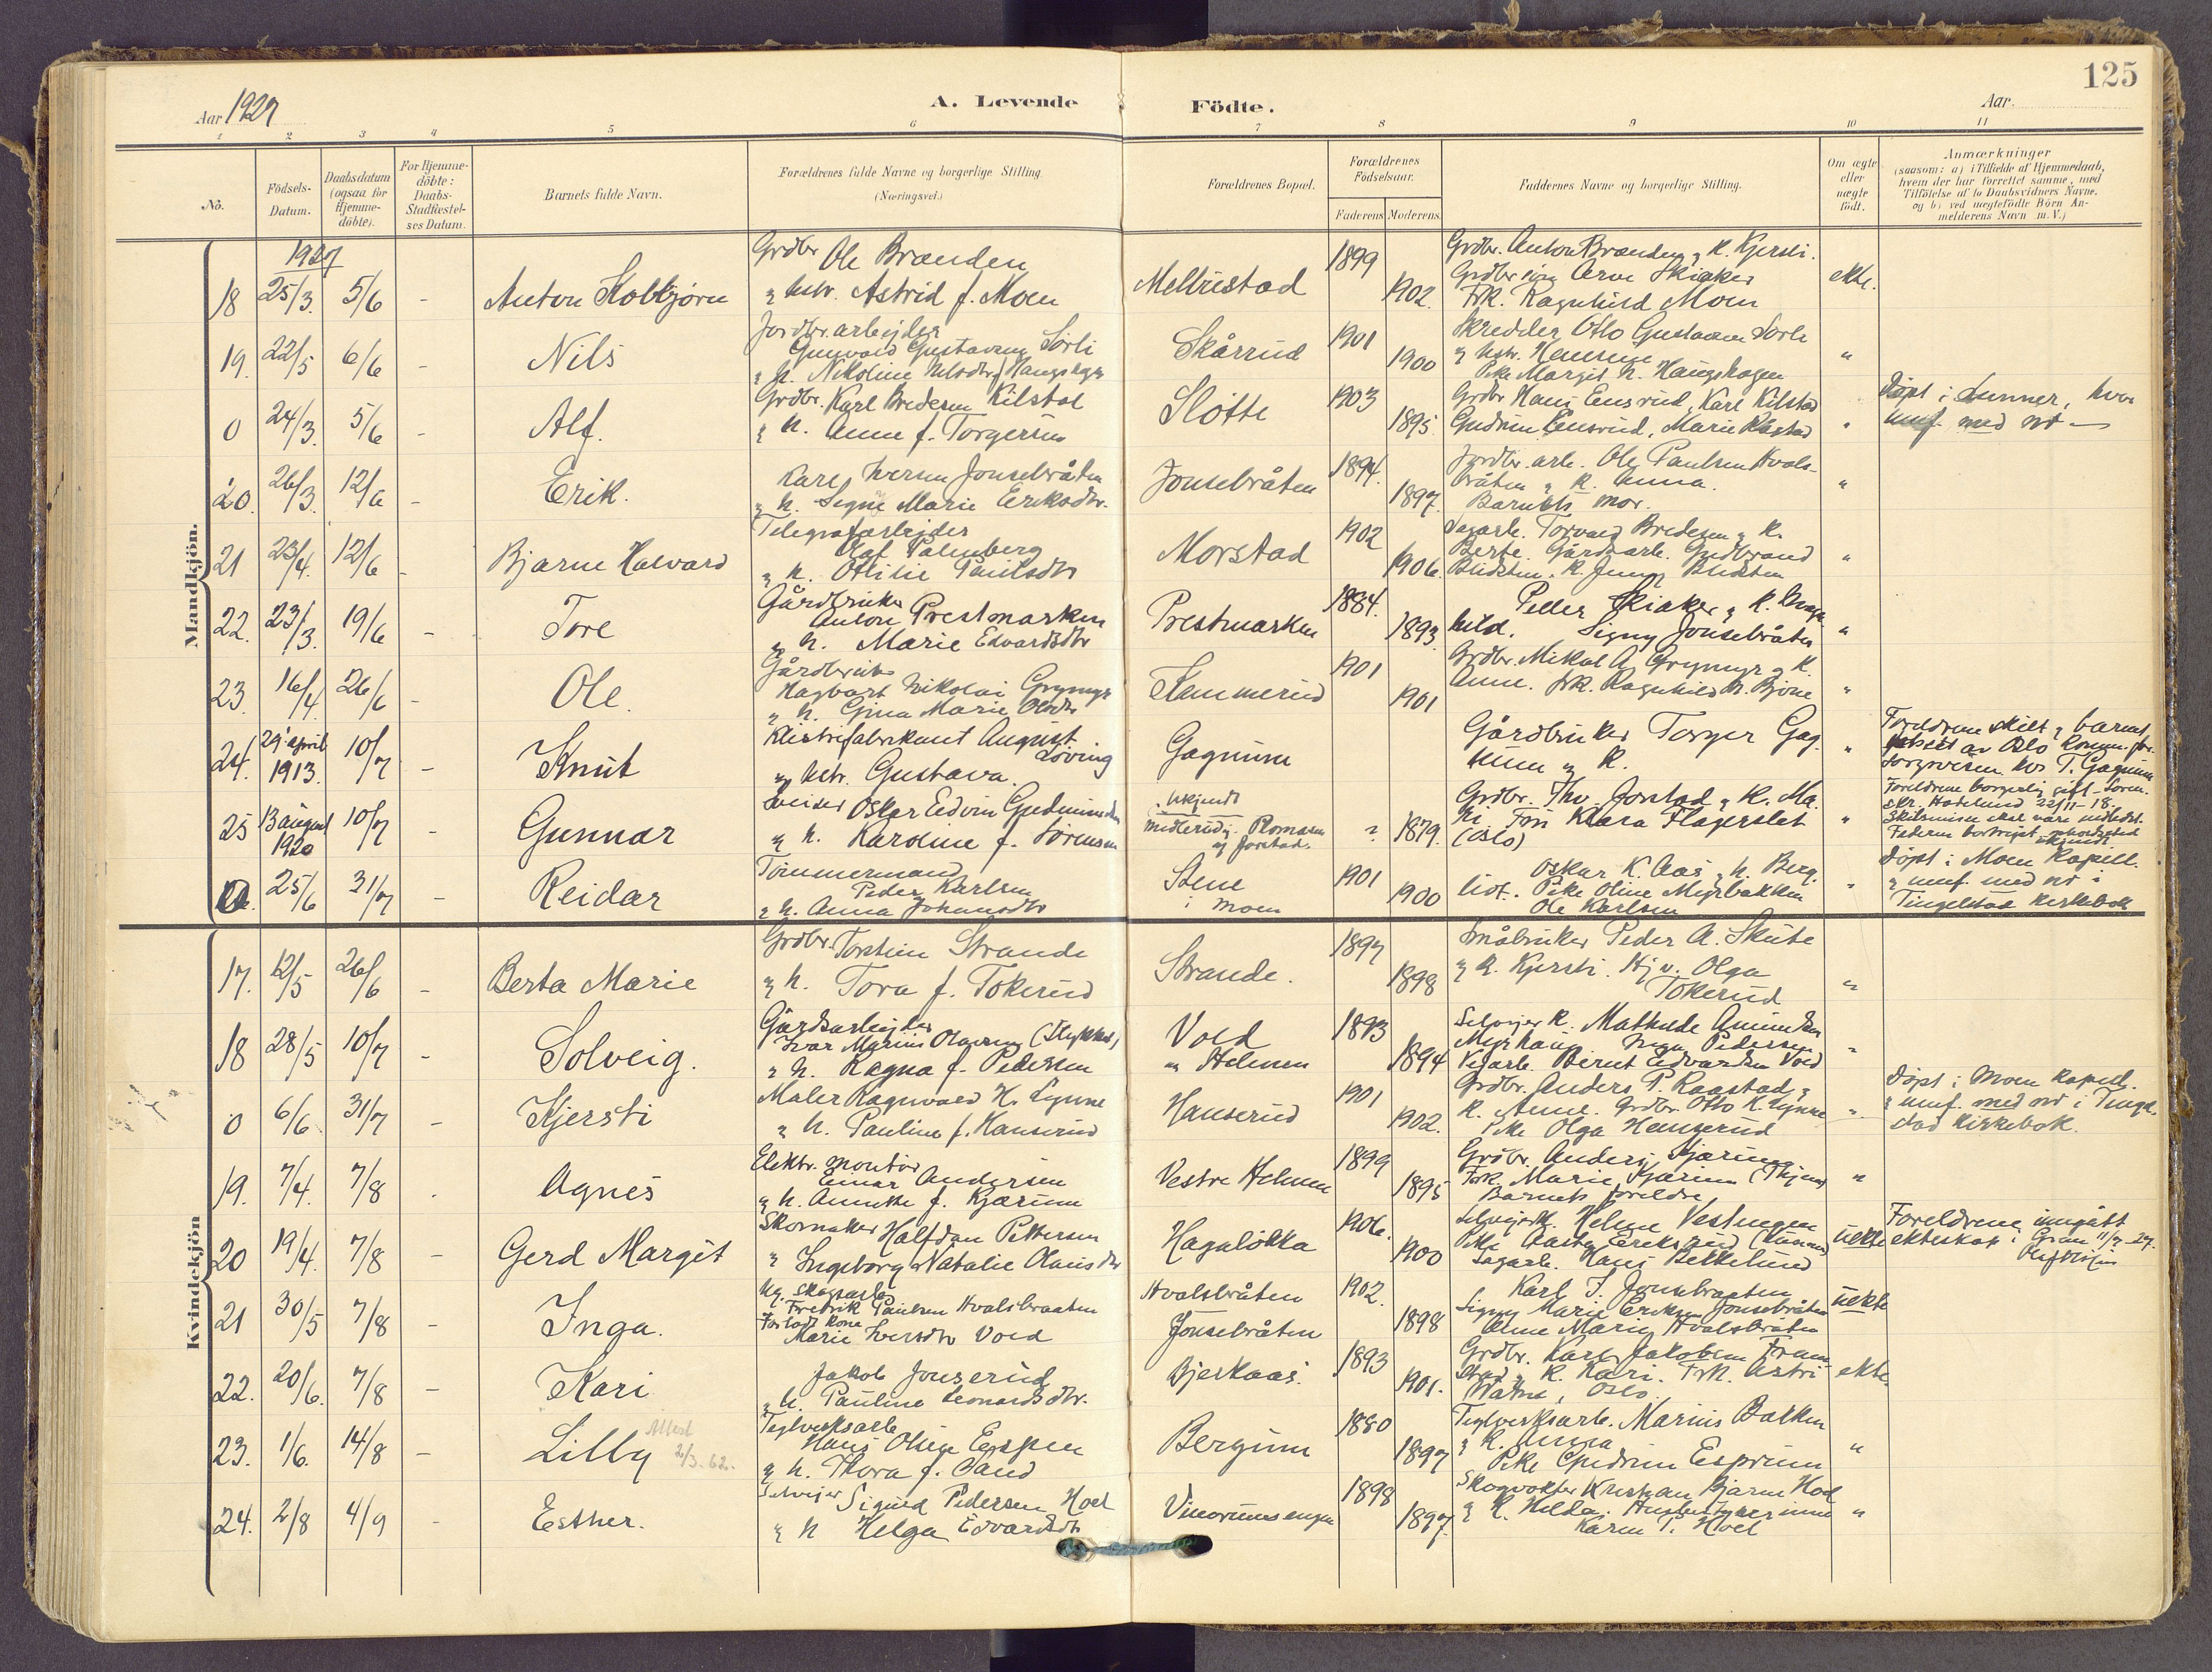 125
Aar 1927
A. Levende Födte.
Aar.
1 2 3 4 5 6 7 8 9 10 11
No.
Födsels-Datum.
Daabsdatum (ogsaa for Hjemme-döbte).
For Hjemme-döbte: Daabs-Stadfæstel-ses Datum.
Barnets fulde Navn.
Forældrenes fulde Navne og borgerlige Stilling. (Næringsvei.)
Forældrenes Bopæl.
Forældrenes Födselsaar.
Faderens Moderens
Faddernes Navne og borgerlige Stilling.
Om ægte eller uægte født.
Anmærkninger
(saasom: a) i Tilfælde af Hjemmedaab, hvem der har forrettet samme, med Tilföielse af to Daabsvidners Navne. og b) ved uægtefödte Börn An-melderens Navn m. V.)
Mandkjön.
1927
18 25/3. 5/6 - Anton Kolbjørn
Grdbr Ole Brænden
hstr. Astrid f. Moen
Mellristad 1899 1902
Grdbr. Anton Brænden, K. Kjersti.
Grdbr søn Arve Skiaker
Frk. Ragnhild Moen
ekte.
19. 22/5 6/6 - Nils
Jordbr. arbejder
Gunvald Gustavsen Sørli
h. Nikoline
Skårrud 1901 1900
Skredder Otto Gustavsen Sørli
Pike Margit N. Haugshagen
"
0 24/3. 5/6 - Alf.
Grdbr. Karl Bredesen Kilstad
h. Anne f. Torgersen
Slotte 1903 1895
Grdbr Hans Ensrud, Karl Kilstad
Gudrun Ensrud, Marie
"
Døpt i Lunner, hvor
med nr —
20. 26/3. 12/6 - Erik.
Karl Iversen Jonsebråten
h. Signe Marie Eriksdtr.
Jonsebråten 1894. 1897.
Jordbr. arb. Ole Paulsen Hvals-
bråten K. Anna.
Barnets mor.
"
21 23/4. 12/6 - Bjarne Halvard
Telegrafarbejder
Olaf Palmberg
h. Otilie Paulsdtr
Morstad 1902 1906.
Sagarb. Torvald Bredesen K.
Berte. Gårdsarb. Gudbrand
K. Jenny
"
22. 23/3. 19/6 - Tore
Gårdbruker
Anton Prestmarken
h. Marie Edvardsdtr
Prestmarken 1884. 1893.
Peder Skiaker, K.
hild. Signy Jonsebråten
"
23. 16/4 26/6 - Ole.
Gårdbruker
Hagbart Nikolai Grymyr
h. Gina Marie Olsdtr
Flammerud 1901 1901
Grdbr. Mikal A. Grymyr K.
Anne. frk. Ragnhild
"
24. 29' april 1913. 10/7 - Knut
fabrikant August Løving
hstr. Gustava.
Gagnum
Gårdbruker Torger Gag-
num K.
"
Foreldrene skilt, barnet
av Oslo komm. for-
sorgsvesen hos T. Gagnum
25 13 august 1920 10/7 - Gunnar
Sveiser Oskar Edvin Gudmundsen
h. Karoline f. Sørensen
ukjendt
Jorstad.
? 1879.
Grdbr. Thv. Jorstad, K. Ma-
ri. Frk Klara Flagerslet
(Oslo)
"
Foreldrene borgerlig gift
22/11 - 18.
Faderen bortreist
25/6 31/7 - Reidar
Tømmermand
Peder Karlsen
h. Anna Johansdtr
Stene i Moen 1901 1900
Oskar K. Aas, h. Berg-
liot. Pike Oline Myrbakken
Ole Karlsen
"
Døpt i Moen kapell.
med nr i
Tingelstad kirkebok
Kvindekjön
17. 12/5 26/6 - Berta Marie
Grdbr. Torstein Strande
h. Tora f. Tokerud
Strande. 1897 1898
Småbruker Peder A. Skute
K. Kjersti. Olga
Tokerud
"
18 28/5 10/7 - Solveig.
Gårdsarbejder
Ivar Marius Olavsen
h. Ragna f. Pedersen
Vold
Helmen
1893 1894
Selvejer K. Mathilde Amundsen
Myrhaug Inga Pedersen
Vejarb. Bernt Edvardsen Vold
"
0 6/6 31/7 - Kjersti
Maler Ragnvald H. Lynne
h. Pauline f. Hanserud
Hanserud 1901 1902.
Grdbr. Anders P. Raastad,
K. Anne. Grdbr. Otto K. Lynne
Pike Olga Hanserud
"
Døpt i Moen kapell.
med nr i Tingel-
stad kirkebok.
19. 7/4. 7/8 - Agnes
Elektr. montør
Einar Andersen
h. Annette f. Kjærum
Vestre Helmen 1899 1895
Grdbr. Anders Kjærum
Frk Marie Kjærum
Barnets foreldre
"
20 19/4. 7/8 - Gerd Margit
Skomaker Halfdan Pettersen
Ingeborg Natalie Olausdtr
Hagaløkka 1906. 1900
Helene Vestengen
Pike Aasta Eriksrud
Sagarb. Hans Bekkelund
uekte
Foreldrene inngått
ekteskap i Gran 11/9 27.
21 30/5 7/8 - Inga.
Ug. skogsarb.
Fredrik Paulsen Hvalsbraaten
Forladt kone
Marie Iversdtr Vold
Hvalsbråten
Jonsebråten
1902. 1898
Karl I. Jonsebraaten
Signy Marie Eriksen Jonsebråten
Anne Marie Hvalsbråten
uekte
22. 20/6. 7/8 - Kari
Jakob Jonserud
h. Pauline Leonardsdtr.
Bjerkaas. 1893 1901.
Grdbr. Karl Jakobsen Fram-
stad, K. Kari. Frk. Astri
Oslo.
ekte.
23. 1/6. 14/8 - Lilly
Attest 2/3-62.
Teglverksarb
Hans Olsen Espen
h. Thora f. Sand
Bergum 1880 1897
Teglverksarb. Marius Bakken
K. Anna
Pike Gudrun Esprum
"
24. 2/8 4/9 - Esther.
Selvejer Sigurd Pedersen Hoel
h Helga Edvardsdtr
1898 1897.
Skogvokter Kristian Bjarne Hoel
K. Hilda. Husbestyrerinne
Karen P. Hoel
"